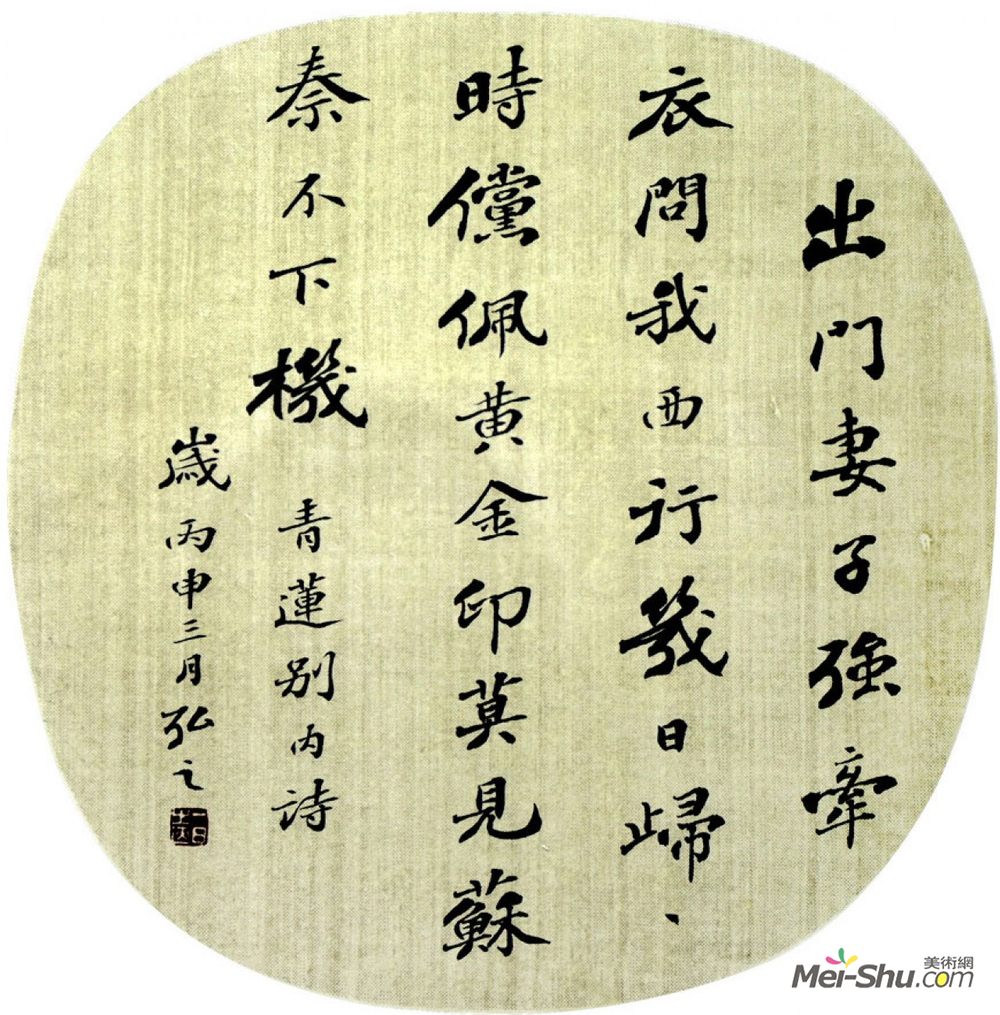 出門妻子強牽
衣問我西行幾日歸、
時儻佩黄金印莫見蘇
秦不下機 青蓮别内詩
歲丙申三月弘之
美術網
Mei-Shu.com